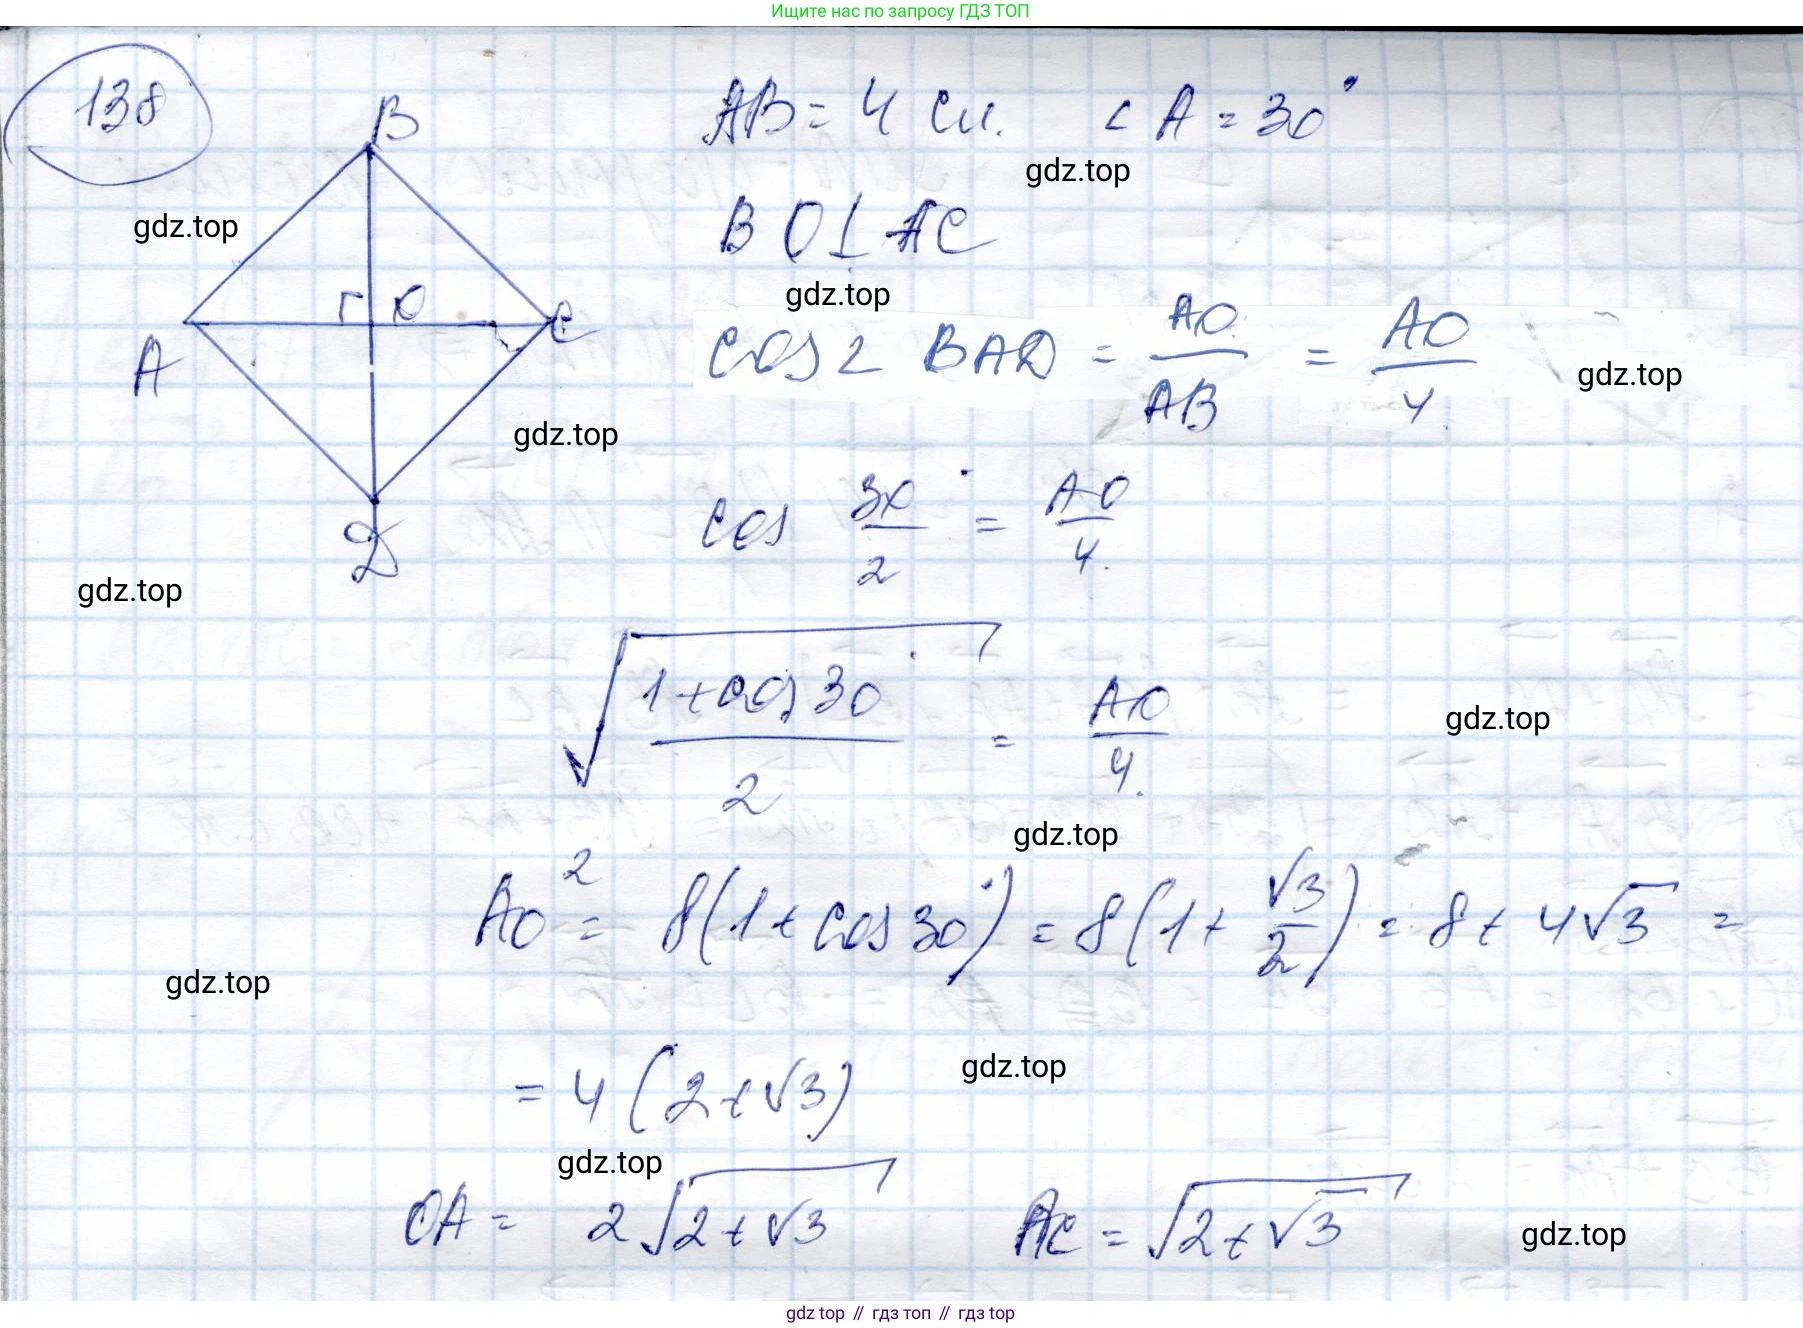 Ищите нас по запросу ГДЗ ТОП
138
B
AB = 4 см. ∠A = 30°
gdz.top
BO ⊥ AC
gdz.top
gdz.top
O
C
A
cos ∠ BAO = AO/AB = AO/4
gdz.top
gdz.top
D
cos 30°/2 = AO/4.
gdz.top
√((1+cos 30°)/2) = AO/4.
gdz.top
gdz.top
AO² = 8(1 + cos 30°) = 8(1 + √3/2) = 8 + 4√3 =
gdz.top
= 4(2+√3)
gdz.top
gdz.top
OA = 2√(2+√3) AC = √(2+√3)
gdz.top
gdz top // гдз топ // гдз top